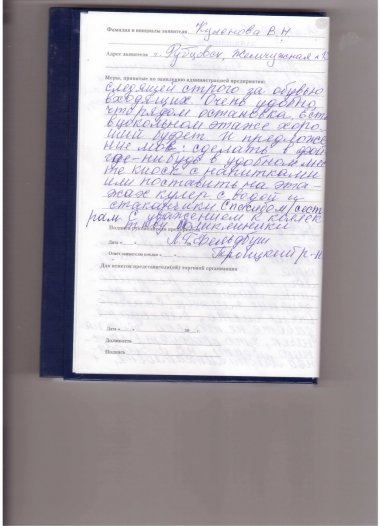 Фамилия и инициалы заявителя Куленова В.Н
Адрес заявителя г. Рубцовск, Жемчужная
Меры, принятые по заявлению администрацией предприятия:
следящей строго за обувью
входящих. Очень удобно,
что рядом остановка. Есть
в цокольном этаже хоро-
ший буфет. И предложе-
ние мов: сделать в фойе
где-нибудь в удобном мес-
те киоск с напитками
или поставить на эта-
жах кулер с водой и
стаканчики. Спасибо, сест-
рам. С уважением к коллек-
тиву поликлиники
Подпись руководителя предприятия
Л.Г. Фельдбуш
Дата «
Ответ заявителю послан «
Троицкий р-н.
Для отметок представителя(ей) торговой организации
Дата « » 20 г.
Должность
Подпись